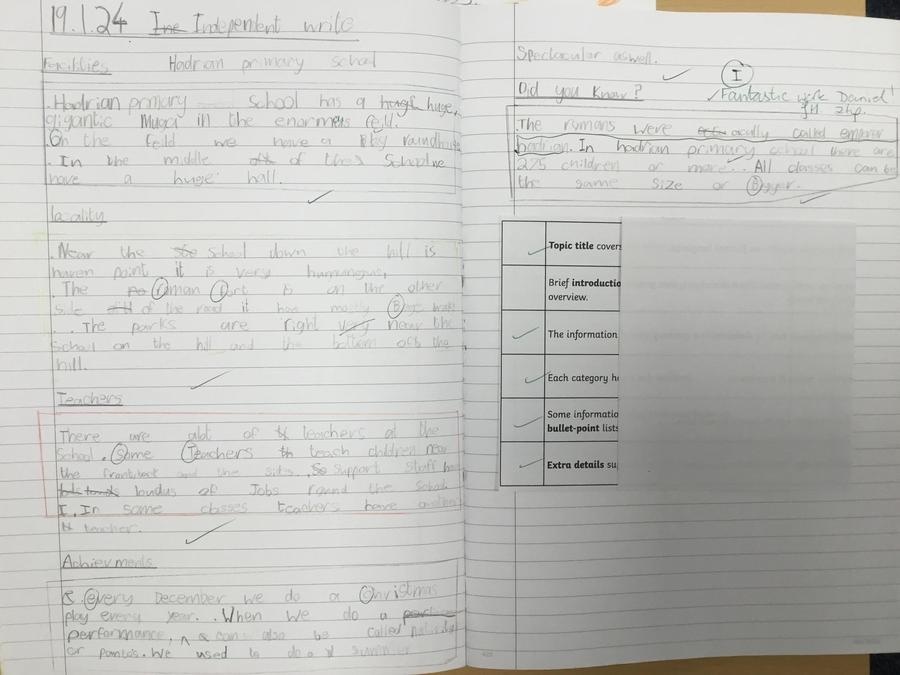 19.1.24 Independent write
Facilities Hadrian primary school
. Hadrian primary school has a huge,
gigantic Muga in the enarmers feild.
. On the feild we have a
. In the middle of the School we
have a huge hall.
locality
. Near the school down the hill is
haven point it is very humungus,
. The roman fort is on the other
side of the road it have mostly
. The parks are right near the
School on the hill and the bottom of the
hill.
Teachers
There are alot of teachers at the
School. Some Teachers teach children near
the and the sides. So support staff
loudus of Jobs round the School
I. In some classes teachers have
teacher.
Achievments
. every December we do a Christmas
play every year. . When we do a
performance, can also be called
or pantos. We used to do a
Spectacular aswell.
I
Did you Know?
Fantastic work Daniel!
The romans were acully called
hadrian. In hadrian primary school there are
225 children or more.. All classes can be
the same size or Bigger.
Topic title covers
Brief introductio
overview.
The information
Each category h
Some informatio
bullet-point lists
Extra details su